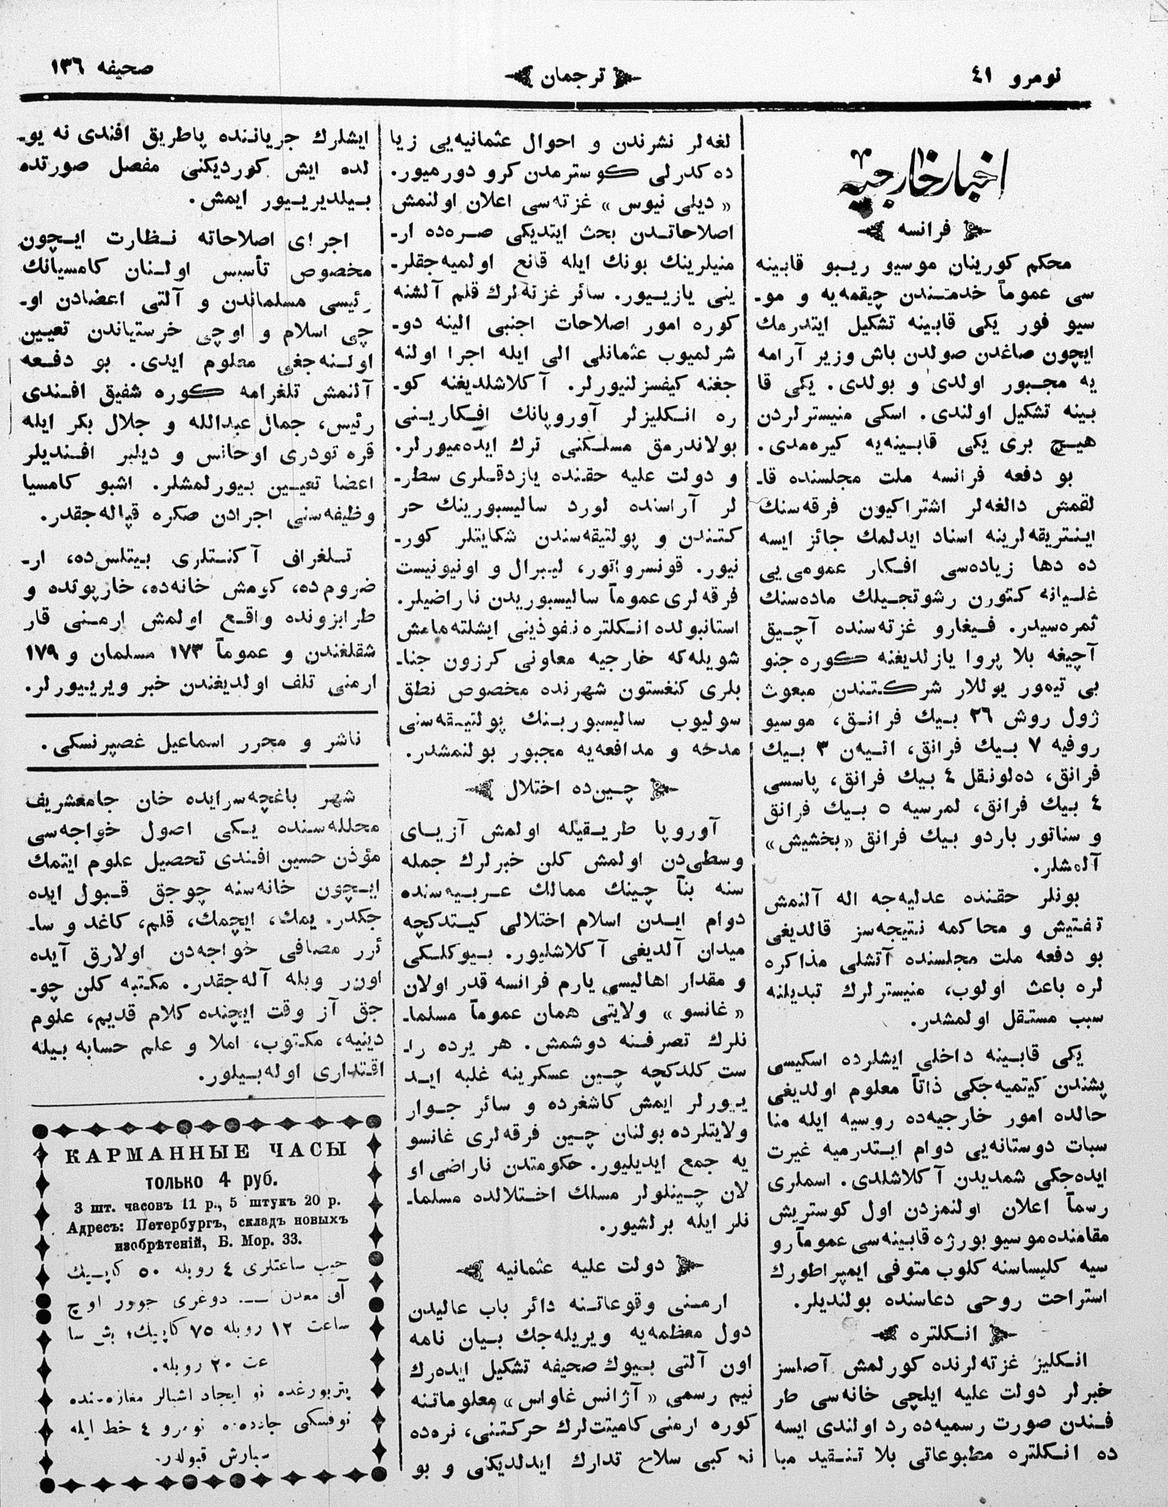 نومرو ٤١
ترجمان
صحيفه ١٣٦
اخبار خارجيه
فرانسه
محكم كورينان موسيو ريبو قابينه
سى عموماً خدمتندن چيقمه‌يه و مو-
سيو فور يكى قابينه تشكيل ايتدرمك
ايچون صاغدن صولدن باش وزير آرامه
يه مجبور اولدى و بولدى. يكى قا
بينه تشكيل اولندى. اسكى منيسترلردن
هيچ برى يكى قابينه‌يه كيره‌مدى.
بو دفعه فرانسه ملت مجلسنده قا-
لقمش دالغه‌لر اشتراكيون فرقه‌سنك
اينتريقه‌لرينه اسناد ايدلمك جائز ايسه
ده دها زياده‌سى افكار عمومى‌يى
غليانه كتورن رشوتجيلك ماده‌سنك
ثمره‌سيدر. فيغارو غزته‌سنده آچيق
آچيغه بلا پروا يازلديغنه كوره جنو
بى تيمور يوللار شركتندن مبعوث
ژول روش ٢٦ بيك فرانق، موسيو
روفيه ٧ بيك فرانق، اتيه‌ن ٣ بيك
فرانق، ده‌لونقل ٤ بيك فرانق، پاسسى
٤ بيك فرانق، لمرسيه ٥ بيك فرانق
و سناتور باردو بيك فرانق «بخشيش»
آلمشلر.
بونلر حقنده عدليه‌جه اله آلنمش
تفتيش و محاكمه نتيجه‌سز قالديغى
بو دفعه ملت مجلسنده آتشلى مذاكره
لره باعث اولوب، منيسترلرك تبديلنه
سبب مستقل اولمشدر.
يكى قابينه داخلى ايشلرده اسكيسى
پشندن كيتميه‌جكى ذاتاً معلوم اولديغى
حالده امور خارجيه‌ده روسيه ايله منا
سبات دوستانه‌يى دوام ايتدرميه غيرت
ايده‌جكى شمديدن آكلاشلدى. اسملرى
رسماً اعلان اولنمزدن اول كوستريش
مقامنده موسيو بورژه قابينه‌سى عموماً رو
سيه كليساسنه كلوب متوفى ايمپراطورك
استراحت روحى دعاسنده بولنديلر.
انكلتره
انكليز غزته‌لرنده كورلمش آصلسز
خبرلر دولت عليه ايلچى خانه‌سى طر
فندن صورت رسميه‌ده رد اولندى ايسه
ده انكلتره مطبوعاتى بلا تنقيد مبا
لغه‌لر نشرندن و احوال عثمانيه‌يى زيا
ده كدرلى كوسترمدن كرو دورميور.
«ديلى نيوس» غزته‌سى اعلان اولنمش
اصلاحاتدن بحث ايتديكى صره‌ده ار-
منيلرينك بونك ايله قانع اولميه‌جقلر-
ينى يازييور. سائر غزته‌لرك قلم آلشنه
كوره امور اصلاحات اجنبى الينه دو-
شرلميوب عثمانلى الى ايله اجرا اولنه
جغنه كيفسزلنيورلر. آكلاشلديغنه كو-
ره انكليزلر آوروپانك افكارينى
بولاندرمق مسلكنى ترك ايده‌ميورلر.
و دولت عليه حقنده يازدقلرى سطر-
لر آراسنده لورد ساليسبورينك حر
كتندن و پولتيقه‌سندن شكايتلر كور-
نيور. قونسرواتور، ليبرال و اونيونيست
فرقه‌لرى عموماً ساليسبوريدن ناراضيلر.
استانبولده انكلتره نفوذينى ايشلته‌مامش
شويله‌كه خارجيه معاونى كرزون جنا-
بلرى كنغستون شهرنده مخصوص نطق
سوليوب ساليسبورينك پولتيقه‌سنى
مدحه و مدافعه‌يه مجبور بولنمشدر.
چين‌ده اختلال
آوروپا طريقيله اولمش آزياى
وسطى‌دن اولمش كلن خبرلرك جمله
سنه بناً چينك ممالك عربيه‌سنده
دوام ايدن اسلام اختلالى كيتدكچه
ميدان آلديغى آكلاشليور. بيوكلكى
و مقدار اهاليسى يارم فرانسه قدر اولان
«غانسو» ولايتى همان عموماً مسلما-
نلرك تصرفنه دوشمش. هر يرده را-
ست كلدكچه چين عسكرينه غلبه ايد
يورلر ايمش كاشغرده و سائر جوار
ولايتلرده بولنان چين فرقه‌لرى غانسو
يه جمع ايديليور. حكومتدن ناراضى او
لان چينلولر مسلك اختلالده مسلما-
نلر ايله برلشيور.
دولت عليه عثمانيه
ارمنى وقوعاتنه دائر باب عاليدن
دول معظمه‌يه ويريله‌جك بيان نامه
اون آلتى بيوك صحيفه تشكيل ايده‌رك
نيم رسمى «آژانس غاواس» معلوماتنه
كوره ارمنى كاميتتلرك حركتنى، نره‌ده
نه كبى سلاح تدارك ايدلديكنى و بو
ايشلرك جرياننده پاطريق افندى نه يو-
لده ايش كورديكنى مفصل صورتده
بيلديرييور ايمش.
اجراى اصلاحاته نظارت ايچون
مخصوص تأسيس اولنان كامسيانك
رئيسى مسلماندن و آلتى اعضادن او-
چى اسلام و اوچى خرستياندن تعيين
اولنه‌جغى معلوم ايدى. بو دفعه
آلنمش تلغرامه كوره شفيق افندى
رئيس، جمال عبدالله و جلال بكر ايله
قره تودرى اوحانس و ديلبر افنديلر
اعضا تعيين بيورلمشلر. اشبو كامسيا
وظيفه‌سنى اجرادن صكره قپاله‌جقدر.
تلغراف آكنتلرى بيتلس‌ده، ار-
ضروم‌ده، كومش خانه‌ده، خارپوتده و
طرابزونده واقع اولمش ارمنى قار
شقلغندن و عموماً ١٧٣ مسلمان و ١٧٩
ارمنى تلف اولديغندن خبر ويرييورلر.
ناشر و محرر اسماعيل غصپرنسكى.
شهر باغچه‌سرايده خان جامعشريف
محلله‌سنده يكى اصول خواجه‌سى
مؤذن حسين افندى تحصيل علوم ايتمك
ايچون خانه‌سنه چوجق قبول ايده
جكدر. يمك، ايچمك، قلم، كاغد و سا-
ئرر مصافى خواجه‌دن اولارق آيده
اونر وبله آله‌جقدر. مكتبه كلن چو-
جق آز وقت ايچنده كلام قديم، علوم
دينيه، مكتوب، املا و علم حسابه بيله
اقتدارى اوله‌بيلور.
КАРМАННЫЕ ЧАСЫ
только 4 руб.
3 шт. часовъ 11 р., 5 штукъ 20 р.
Адресъ: Петербургъ, складъ новыхъ
изобрѣтеній, Б. Мор. 33.
جيب ساعتلرى ٤ روبله ٥٠ كاپيك
آق معدن ـــ دوغرى جوور اوچ
ساعت ١٢ روبله ٧٥ كاپيك؛ بش سا
عت ٢٠ روبله.
پتربورغده نو ايجاد اشيالر مغازه‌سنده
نوفسكى جاده‌ده نومرو ٤ خط ايله
سپارش قبولدر.